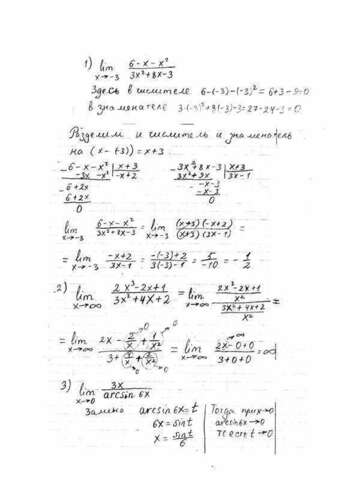 1) lim x→-3 (6-x-x²)/(3x²+8x-3)
Здесь в числителе 6-(-3)-(-3)²=6+3-9=0
в знаменателе 3·(-3)²+8(-3)-3=27-24-3=0
Разделим и числитель и знаменатель
на (x-(-3))=x+3
6-x-x² | x+3
-3x-x² | -x+2
6+2x
6+2x
0
3x²+8x-3 | x+3
3x²+9x | 3x-1
-x-3
-x-3
0
lim x→-3 (6-x-x²)/(3x²+8x-3) = lim x→-3 (x+3)(-x+2)/(x+3)(3x-1) =
= lim x→-3 (-x+2)/(3x-1) = (-(-3)+2)/(3(-3)-1) = 5/-10 = -1/2
2) lim x→∞ (2x³-2x+1)/(3x²+4x+2) = lim x→∞ ((2x³-2x+1)/x²)/((3x²+4x+2)/x²) =
= lim x→∞ (2x-2/x+1/x²)/(3+4/x+2/x²) = lim x→∞ (2x-0+0)/(3+0+0) = ∞
3) lim x→0 3x/arcsin 6x
Замена arcsin 6x = t | Тогда при x→0
6x = sin t | arcsin 6x→0
x = sin t/6 | То есть t→0